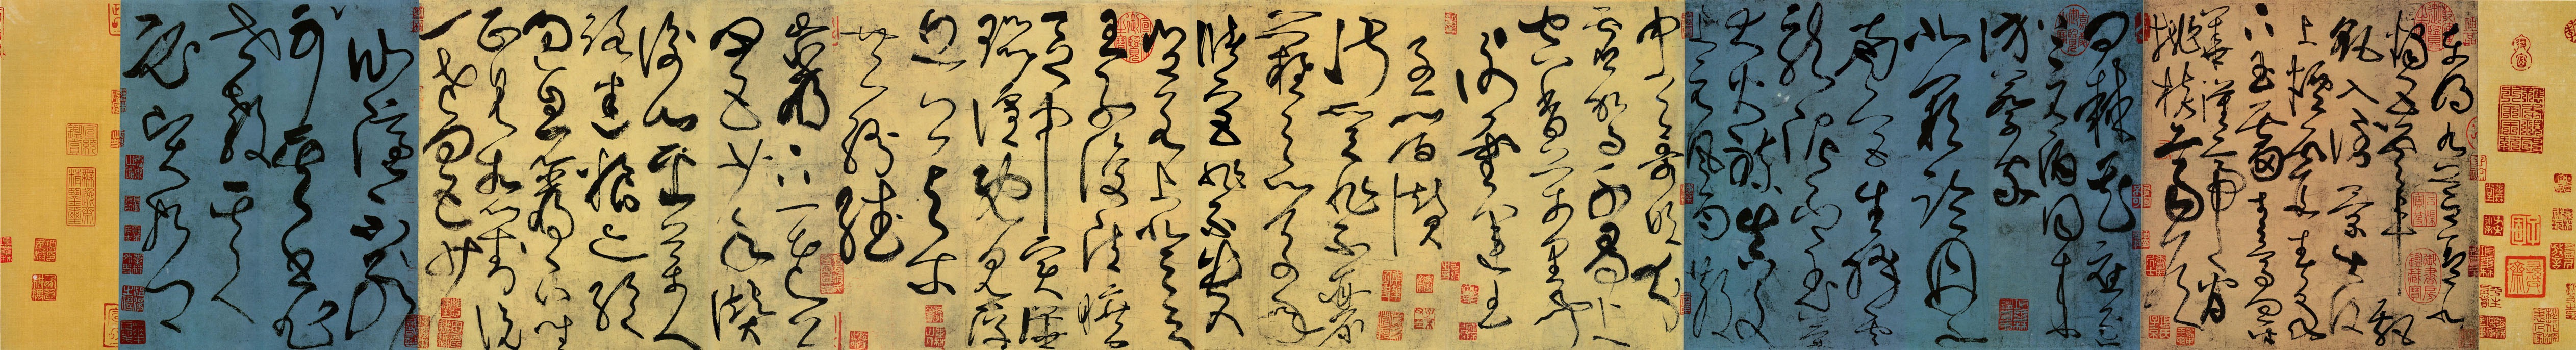 東明九芝蓋北
燭五雲車飄
飖入倒景出沒
上煙霞春泉
下玉霤青鳥向金
華漢帝看
桃核齊侯
問棘花應逐
上元酒同來
訪蔡家
北闕臨丹水
南宮生絳雲
龍泥印玉簡
大火煉真文
上元風雨散
中天歌吹分
靈駕千尋上
空香萬里聞
謝靈運王
子晉讚
淑質非不麗
難以之百年
儲宮非不貴
豈若上登天
王子復清曠
區中實譁囂
喧既見浮
丘公與爾
共紛繙
巖下一老公
四五少年讚
衡山採藥人
路迷糧亦絕
過息巖下坐
正見相對說
一老四五少
仙隱不別
可其書非
世教其人
必賢哲